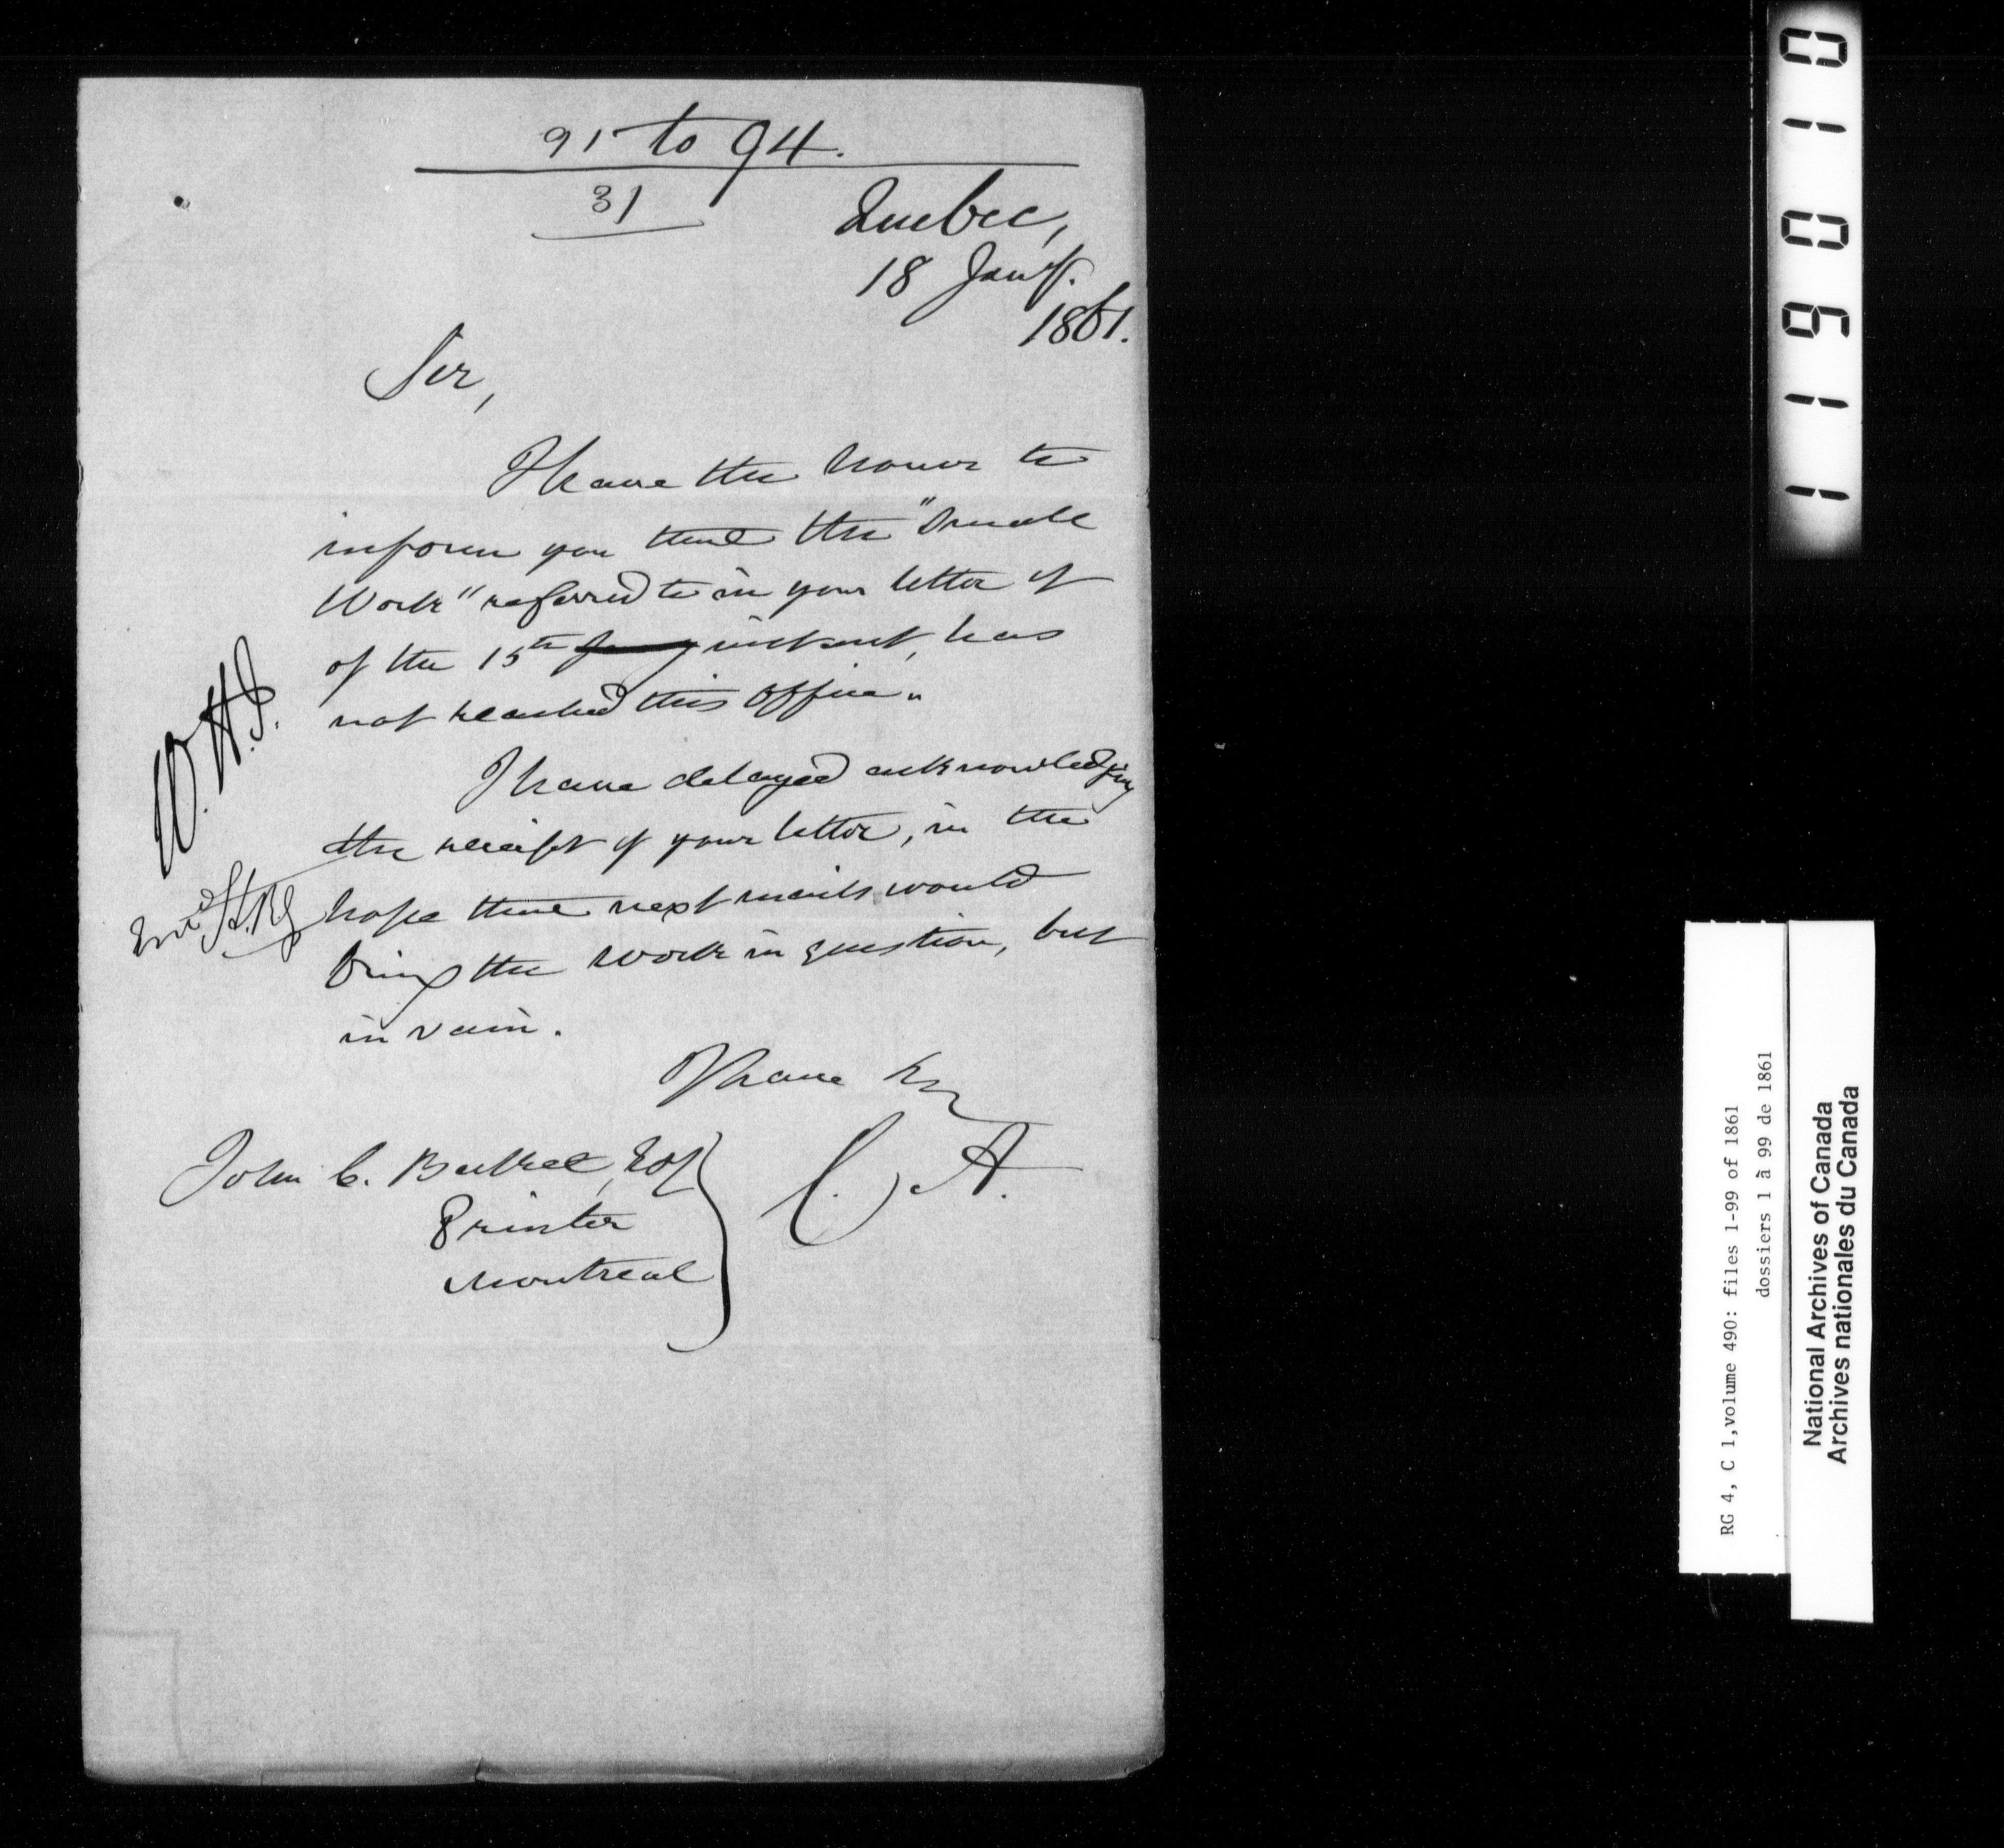 91 to 94.
31
Quebec,
18 Jany.
1861.
Sir,
I have the honor to
inform you that the "Small
Work" referred to in your letter of
of the 15th instant, has
not reached this Office.
I have delayed acknowledging
the receipt of your letter, in the
hope that next mails would
bring the work in question, but
in vain.
I have &c
C. A.
John C. Becket, Esq
Printer
Montreal
W. H. J.
RG 4, C 1, volume 490: files 1-99 of 1861
dossiers 1 à 99 de 1861
National Archives of Canada
Archives nationales du Canada
119010